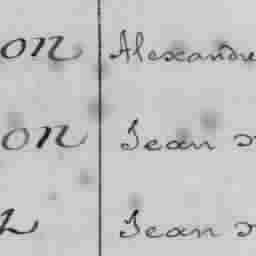 on Alexandre
on Jean
Jean